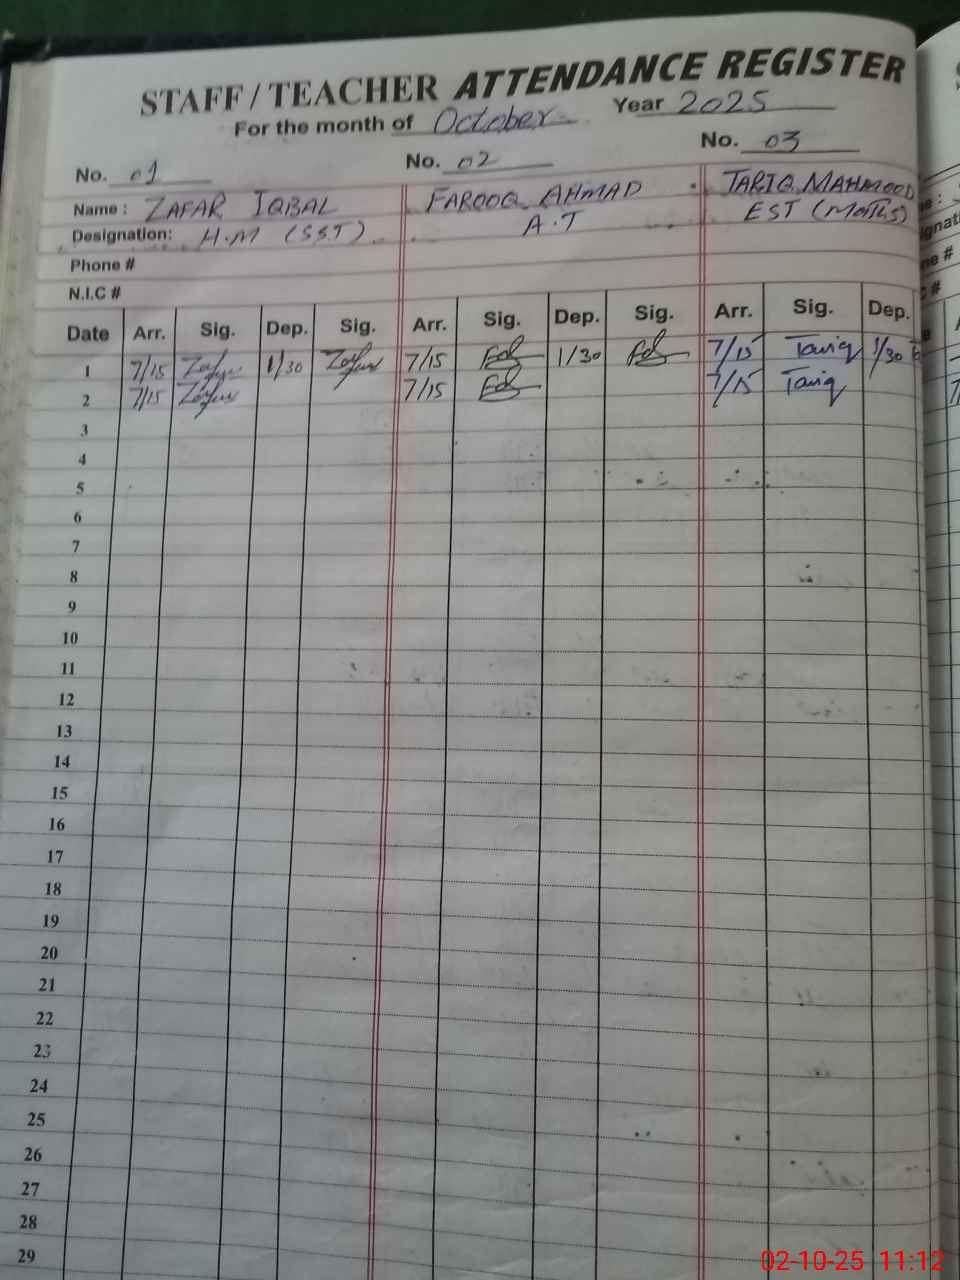 STAFF / TEACHER ATTENDANCE REGISTER
For the month of October Year 2025
No. 01 No. 02 No. 03
Name : ZAFAR IQBAL FAROOQ AHMAD TARIQ MAHMOOD
Designation: H.M (SST) A.T EST (Maths)
Phone #
N.I.C #
Date Arr. Sig. Dep. Sig. Arr. Sig. Dep. Sig. Arr. Sig. Dep.
1 7/15 Zafar 1/30 Zafar 7/15 1/30 7/15 Tariq 1/30
2 7/15 Zafar 7/15 7/15 Tariq
3
4
5
6
7
8
9
10
11
12
13
14
15
16
17
18
19
20
21
22
23
24
25
26
27
28
29
02-10-25 11:12